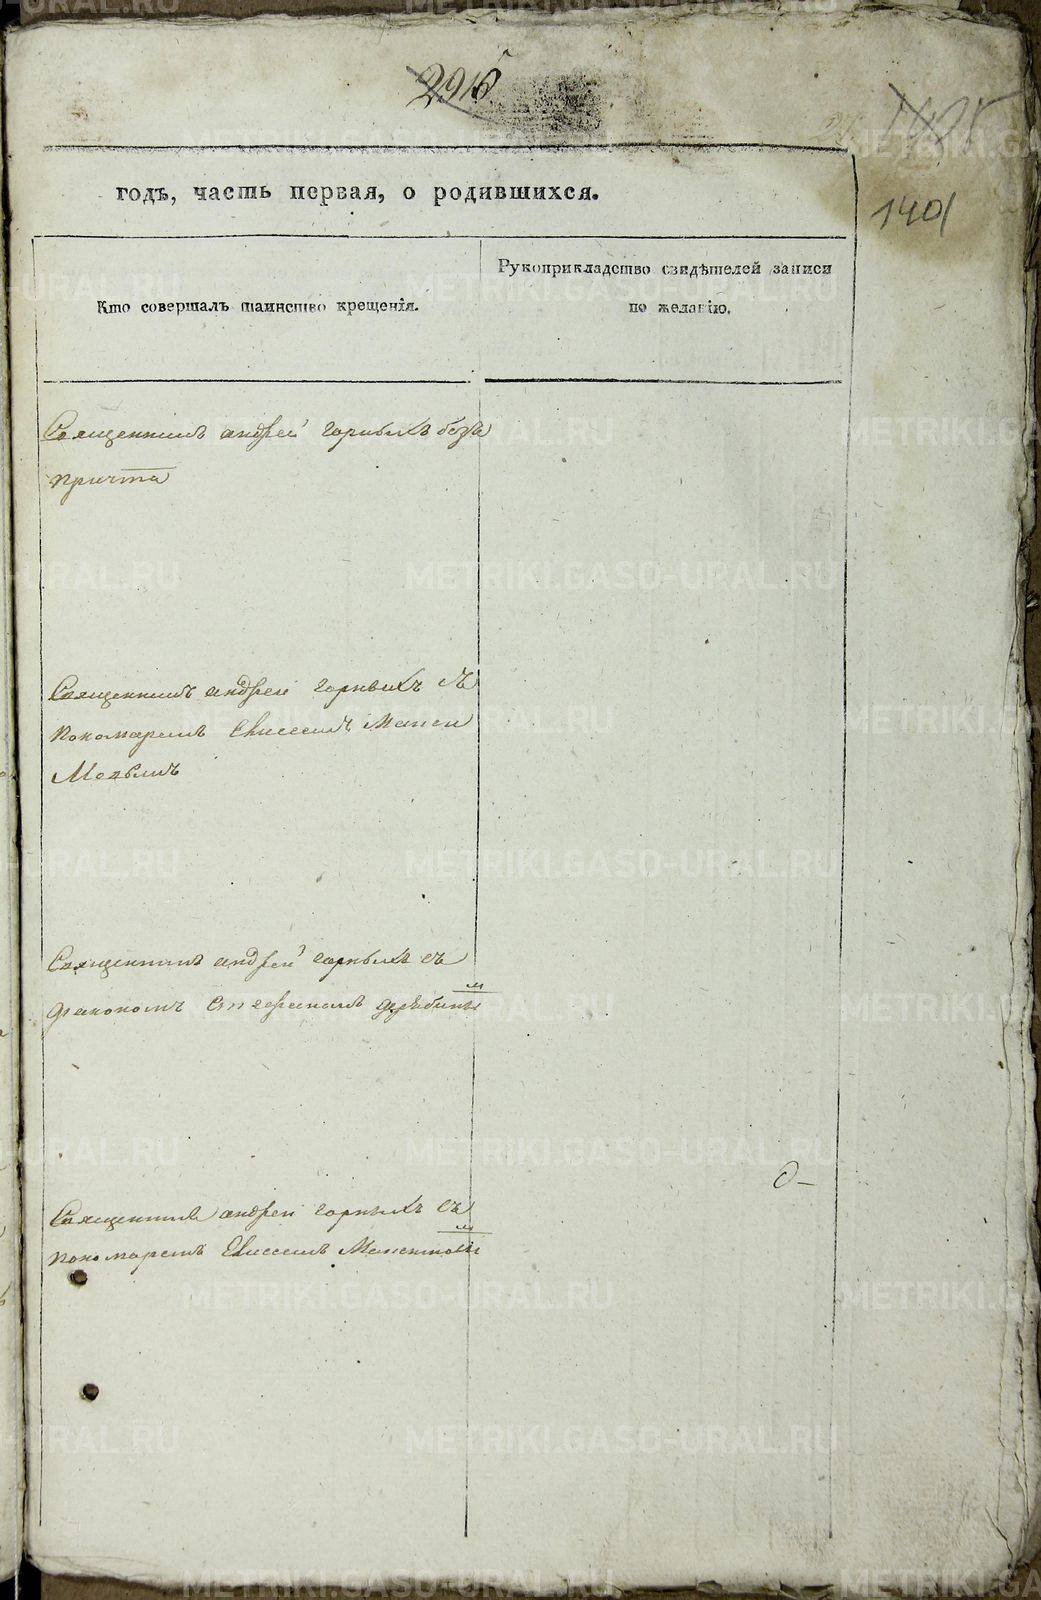 296
1401
годъ, часть первая, о родившихся.
Кто совершалъ таинство крещенія.
Рукоприкладство свидѣтелей записи
по желанію.
Священникъ андрей горныхъ безъ
причта
Священникъ андреи горныхъ съ
пономаремъ Елисеемъ
Священникъ андрей горныхъ съ
диакономъ Стефаномъ
Священникъ андреи горныхъ съ
пономаремъ Елисеемъ
METRIKI.GASO-URAL.RU